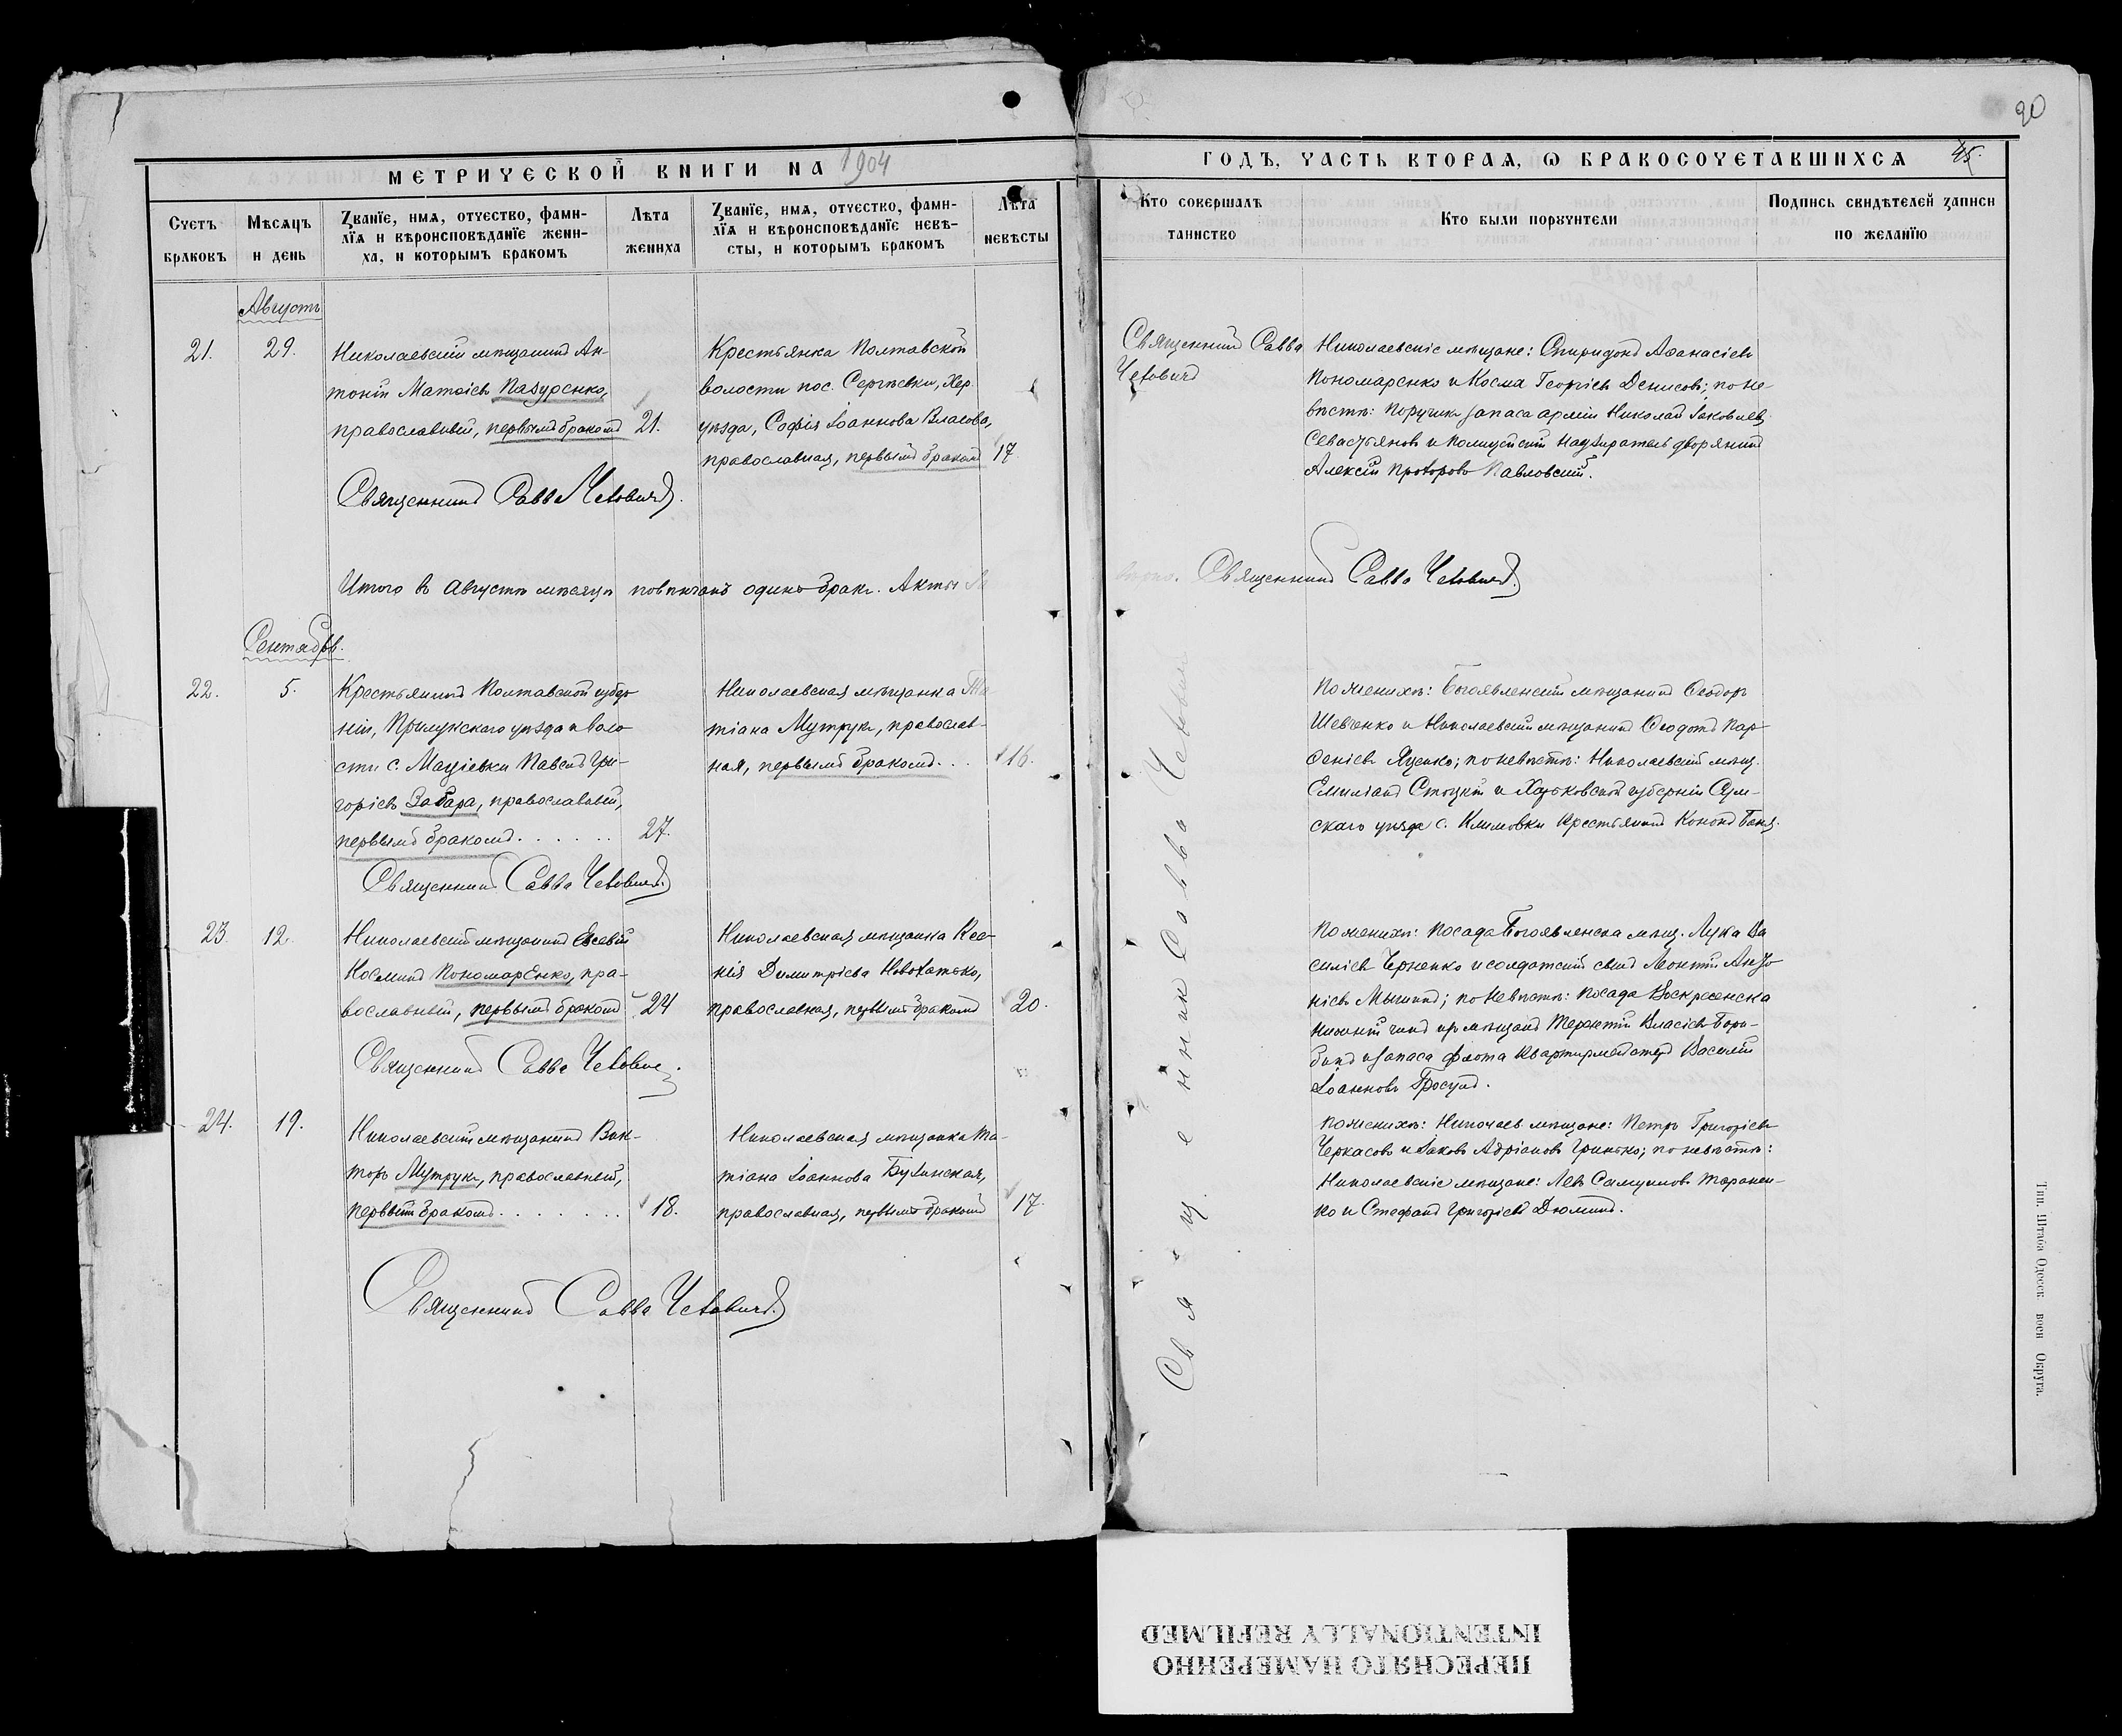 90
МЕТРИЧЕСКОЙ КНИГИ НА 1904
ГОДЪ, ЧАСТЬ ВТОРАЯ, Ѡ БРАКОСОЧЕТАВШИХСЯ 45.
Счетъ браковъ
Мѣсяцъ и день
Званїе, имя, отчество, фами-
лїя и вѣроисповѣданїе жени-
ха, и которымъ бракомъ
Лѣта жениха
Званїе, имя, отчество, фами-
лїя и вѣроисповѣданїе невѣ-
сты, и которымъ бракомъ
Лѣта невѣсты
Кто совершалъ
таинство
Кто были поручители
Подпись свидѣтелей записи
по желанїю
Августъ
21. 29.
Николаевскій мѣщанинъ Ан-
тоній Матѳіевъ Пазуренко,
православный, первымъ бракомъ 21.
Крестьянка Полтавской
волости пос. Сергѣевки, Хер.
уѣзда, Софія Іоаннова Власова,
православная, первымъ бракомъ 17
Священникъ Савва
Четовичъ
Николаевскіе мѣщане: Спиридонъ Аѳанасіевъ
Пономаренко и Косма Георгіевъ Денисовъ; по не-
вѣстѣ: Поручикъ запаса арміи Николай Іаковлев.
Севастьяновъ и полицейскій надзиратель дворянинъ
Алексій Прохоровъ Павловскій.
Священникъ Савва Четовичъ.
Итого въ Августѣ мѣсяцѣ повѣнчанъ одинъ бракъ. Акты
Священникъ Савва Четовичъ.
Сентябрь.
22. 5.
Крестьянинъ Полтавской губер
ніи, Прилукскаго уѣзда и воло
сти с. Мацѣевки Павелъ Гри-
горіевъ Забара, православный,
первымъ бракомъ. 27.
Николаевская мѣщанка Та-
тіана Мутрукъ, православ-
ная, первымъ бракомъ. 16.
По женихѣ: Богоявленскій мѣщанинъ Ѳеодоръ
Шевченко и Николаевскій мѣщанинъ Ѳеодотъ Пар-
ѳеніевъ Яценко; по невѣстѣ: Николаевскій мѣщ.
Емиліанъ Стоцкій и Харьковской губерніи Сум-
скаго уѣзда с. Климовки крестьянинъ Кононъ
Священникъ Савва Четовичъ.
23. 12.
Николаевскій мѣщанинъ Евсевій
Косминъ Пономаренко, пра-
вославный, первымъ бракомъ 24
Николаевская мѣщанка Ксе-
нія Димитріева Новохатько,
православная, первымъ бракомъ 20.
По женихѣ: посада Богоявленска мѣщ. Лука Ва
силіевъ Черненко и солдатскій сынъ Леонтій Анто
ніевъ; по невѣстѣ: посада Воскресенска
нижній чинъ изъ мѣщанъ Терентій Власіевъ
и запаса флота квартирмейстеръ Василій
Іоанновъ
Священникъ Савва Четович.
24. 19.
Николаевскій мѣщанинъ Вик-
торъ Мутрукъ, православный,
первымъ бракомъ. 18.
Николаевская мѣщанка Та-
тіана Іоаннова
православная, первымъ бракомъ 17.
По женихѣ: Николаев мѣщане: Петръ Григоріевъ
Черкасовъ и Іаковъ Адріановъ Гринько; по невѣстѣ:
Николаевскіе мѣщане: Левъ Самуиловъ Таранен-
ко и Стефанъ Григоріевъ Дюминъ.
Священникъ Савва Четовичъ.
Священник Савва Четович
Тип. Штаба Одесск. воен Округа.
ПЕРЕСНЯТО НАМЕРЕННО
INTENTIONALLY REFILMED